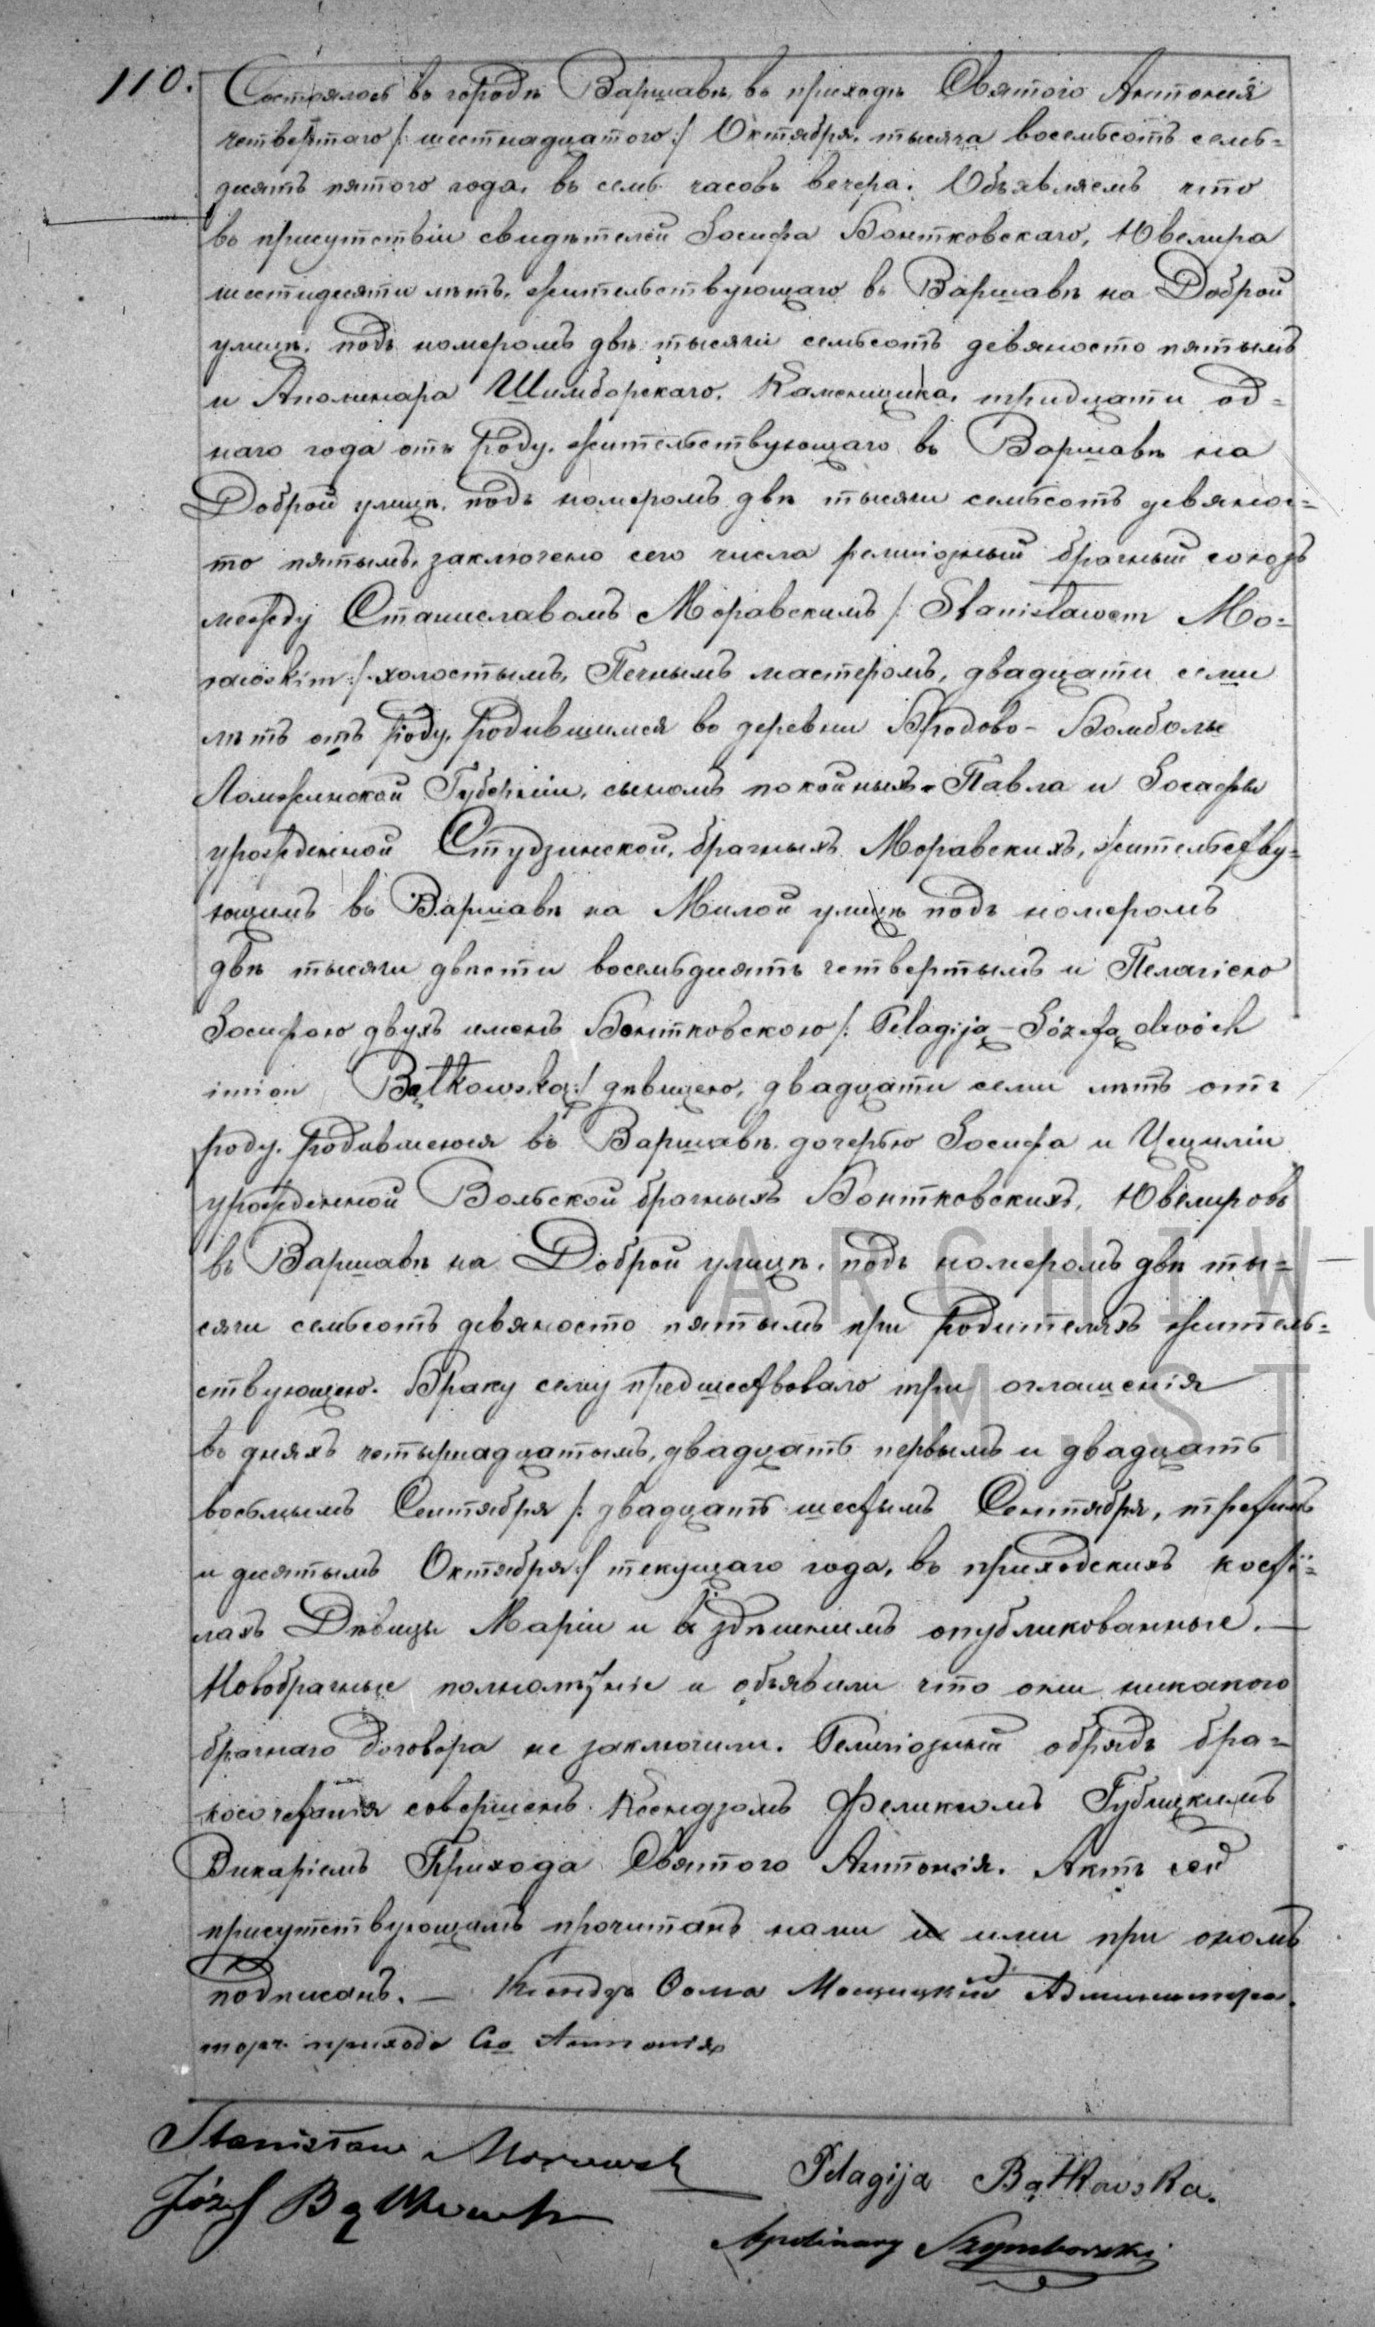 110.
Состоялось въ городѣ Варшавѣ, въ приходѣ Святого Антонія
четвертаго /: шестнадцатого :/ Октября, тысяча восемьсотъ семь=
десятъ пятого года, въ семь часовъ вечера. Объявляемъ что
въ присутствіи свидѣтелей Іосифа Бонтковскаго, Ювелира
шестидесяти лѣтъ, жительствующаго въ Варшавѣ на Доброй
улицѣ, подъ номеромъ двѣ тысячи семьсотъ девяносто пятымъ
и Аполинара Шимборскаго, Каменщика, тридцати од=
наго года отъ роду, жительствующаго въ Варшавѣ на
Доброй улицѣ, подъ номеромъ двѣ тысячи семьсотъ девянос=
то пятымъ, заключено сего числа религіозный брачный союзъ
между Станиславомъ Моравскимъ /: Stanisławem Mo=
rawskim :/ холостымъ, Печнымъ мастеромъ, двадцати семи
лѣтъ отъ роду, родившимся въ деревни Бродово-Бомболы
Ломжинской Губерніи, сыномъ покойныхъ Павла и Іосафы
урожденной Студзинской, брачныхъ Моравскихъ, жительству=
ющимъ въ Варшавѣ на Милой улицѣ подъ номеромъ
двѣ тысячи двѣсти восемьдесятъ четвертымъ и Пелагіею
Іосифою двухъ именъ Бонтковскою /: Pelagiją-Józefą dwóch
imion Bątkowską :/ дѣвицею, двадцати семи лѣтъ отъ
роду, родившеюся въ Варшавѣ, дочерью Іосифа и Цециліи
урожденной Вольской брачныхъ Бонтковскихъ, Ювелировъ
въ Варшавѣ на Доброй улицѣ, подъ номеромъ двѣ ты=
сячи семьсотъ девяносто пятымъ при родителяхъ житель=
ствующею. Браку сему предшествовало три оглашенія
въ дняхъ четырнадцатымъ, двадцать первымъ и двадцать
восьмымъ Сентября /: двадцать шестымъ Сентября, третимъ
и десятымъ Октября :/ текущаго года, въ приходскихъ костё=
лахъ Дѣвицы Маріи и здѣшнимъ опубликованные. —
Новобрачные полнолѣтніе и объявили что они никакого
брачнаго договора не заключили. Религіозный обрядъ бра=
косочетанія совершенъ Ксендзомъ Феликсомъ Губицкимъ
Викаріемъ Прихода Святого Антонія. Актъ сей
присутствующимъ прочитанъ нами и ими при окомъ
подписанъ. — Ксендзъ Ѳома Мощицкій Администра
торъ прихода Св Антонія
Stanisław Morawski
Józef Bątkowski
Pelagija Bątkowska.
Apolinary Szymborski
ARCHIWU
M.ST